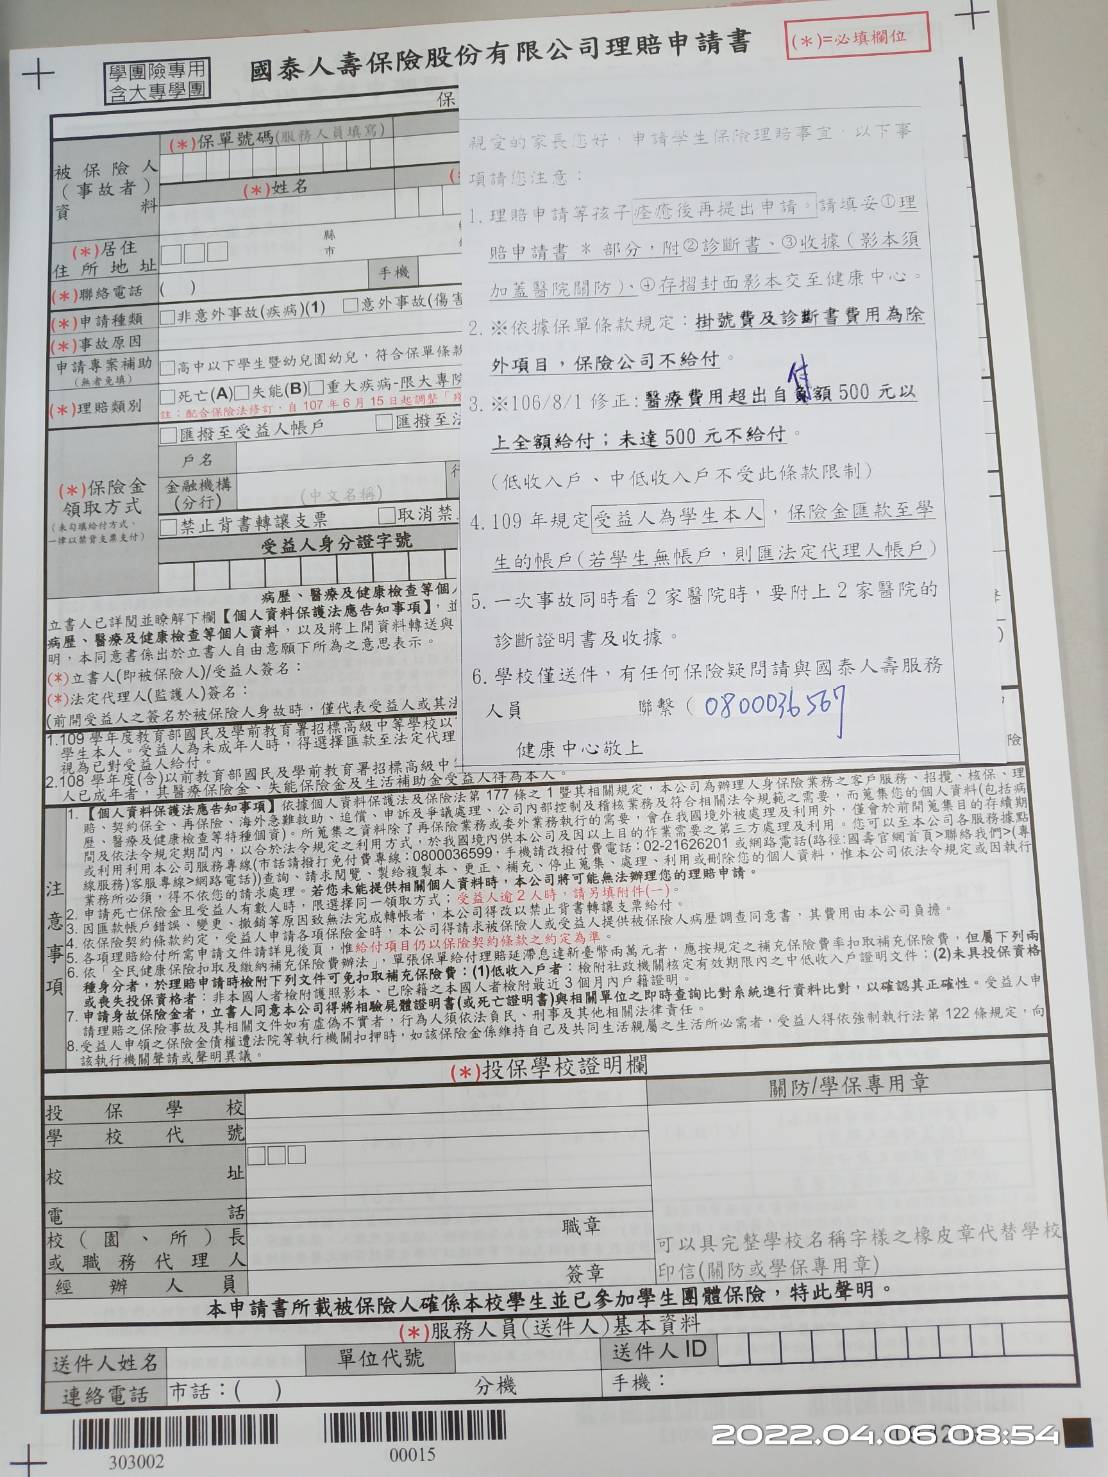 學團險專用
含大專學團
國泰人壽保險股份有限公司理賠申請書
(*)=必填欄位
保
被保險人
(事故者)
資料
(*)保單號碼(服務人員填寫)
(*)姓名
(*)居住
住所地址
縣
市
(*)聯絡電話
( )
手機
(*)申請種類
□非意外事故(疾病)(1) □意外事故(傷害
(*)事故原因
申請專案補助
(無者免填)
□高中以下學生暨幼兒園幼兒，符合保單條款
(*)理賠類別
□死亡(A)□失能(B)□重大疾病-限大專院
註：配合保險法修訂，自107年6月15日起調整「殘
(*)保險金
領取方式
(未勾填給付方式，
一律以禁背支票支付)
□匯撥至受益人帳戶 □匯撥至法
戶名
金融機構
(分行)
(中文名稱)
行
□禁止背書轉讓支票 □取消禁
受益人身分證字號
病歷、醫療及健康檢查等個人
立書人已詳閱並瞭解下欄【個人資料保護法應告知事項】，並
病歷、醫療及健康檢查等個人資料，以及將上開資料轉送與
明，本同意書係出於立書人自由意願下所為之意思表示。
(*)立書人(即被保險人)/受益人簽名：
(*)法定代理人(監護人)簽名：
(前開受益人之簽名於被保險人身故時，僅代表受益人或其法
1.109學年度教育部國民及學前教育署招標高級中等學校以
學生本人。受益人為未成年人時，得選擇匯款至法定代理
視為已對受益人給付。
2.108學年度(含)以前教育部國民及學前教育署招標高級中
人已成年者，其醫療保險金、失能保險金及生活補助金受益人得為本人。
險
親愛的家長您好，申請學生保險理賠事宜，以下事
項請您注意：
1.理賠申請等孩子痊癒後再提出申請。請填妥①理
賠申請書＊部分，附②診斷書、③收據（影本須
加蓋醫院關防）、④存摺封面影本交至健康中心。
2.※依據保單條款規定：掛號費及診斷書費用為除
外項目，保險公司不給付。
付
3.※106/8/1修正:醫療費用超出自負額500元以
上全額給付；未達500元不給付。
（低收入戶、中低收入戶不受此條款限制）
4.109年規定受益人為學生本人，保險金匯款至學
生的帳戶(若學生無帳戶，則匯法定代理人帳戶)
5.一次事故同時看2家醫院時，要附上2家醫院的
診斷證明書及收據。
6.學校僅送件，有任何保險疑問請與國泰人壽服務
人員 聯繫（ 0800036567
健康中心敬上
注意事項
1.【個人資料保護法應告知事項】依據個人資料保護法及保險法第177條之1暨其相關規定，本公司為辦理人身保險業務之客戶服務、招攬、核保、理
賠、契約保全、再保險、海外急難救助、追償、申訴及爭議處理、公司內部控制及稽核業務及符合相關法令規範之需要，而蒐集您的個人資料(包括病
歷、醫療及健康檢查等特種個資)。所蒐集之資料除了再保險業務或委外業務執行的需要，會在我國境外被處理及利用外，僅會於前開蒐集目的存續期
間及依法令規定期間內，以合於法令規定之利用方式，於我國境內供本公司及因以上目的作業需要之第三方處理及利用。您可以至本公司各服務據點
或利用利用本公司服務專線(市話請撥打免付費專線：0800036599，手機請改撥付費電話：02-21626201或網路電話(路徑:國壽官網首頁>聯絡我們>(專
線服務)客服專線>網路電話))查詢、請求閱覽、製給複製本、更正、補充、停止蒐集、處理、利用或刪除您的個人資料，惟本公司依法令規定或因執行
業務所必須，得不依您的請求處理。若您未能提供相關個人資料時，本公司將可能無法辦理您的理賠申請。
2.申請死亡保險金且受益人有數人時，限選擇同一領取方式；受益人逾2人時，請另填附件(一)。
3.因匯款帳戶錯誤、變更、撤銷等原因致無法完成轉帳者，本公司得改以禁止背書轉讓支票給付。
4.依保險契約條款約定，受益人申請各項保險金時，本公司得請求被保險人或受益人提供被保險人病歷調查同意書，其費用由本公司負擔。
5.各項理賠給付所需申請文件請詳見後頁，惟給付項目仍以保險契約條款之約定為準。
6.依「全民健康保險扣取及繳納補充保險費辦法」，單張保單給付理賠延滯息達新臺幣兩萬元者，應按規定之補充保險費率扣取補充保險費，但屬下列兩
種身分者，於理賠申請時檢附下列文件可免扣取補充保險費：(1)低收入戶者：檢附社政機關核定有效期限內之中低收入戶證明文件；(2)未具投保資格
或喪失投保資格者：非本國人者檢附護照影本、已除籍之本國人者檢附最近3個月內戶籍證明。
7.申請身故保險金者，立書人同意本公司得將相驗屍體證明書(或死亡證明書)與相關單位之即時查詢比對系統進行資料比對，以確認其正確性。受益人申
請理賠之保險事故及其相關文件如有虛偽不實者，行為人須依法負民、刑事及其他相關法律責任。
8.受益人申領之保險金債權遭法院等執行機關扣押時，如該保險金係維持自己及共同生活親屬之生活所必需者，受益人得依強制執行法第122條規定，向
該執行機關聲請或聲明異議。
(*)投保學校證明欄
投保學校
關防/學保專用章
學校代號
校址
電話
校(園、所)長
或職務代理人
職章
經辦人員
簽章
可以具完整學校名稱字樣之橡皮章代替學校
印信(關防或學保專用章)
本申請書所載被保險人確係本校學生並已參加學生團體保險，特此聲明。
(*)服務人員(送件人)基本資料
送件人姓名
單位代號
送件人ID
連絡電話
市話：( )
分機
手機：
303002
00015
2022.04.06 08:54